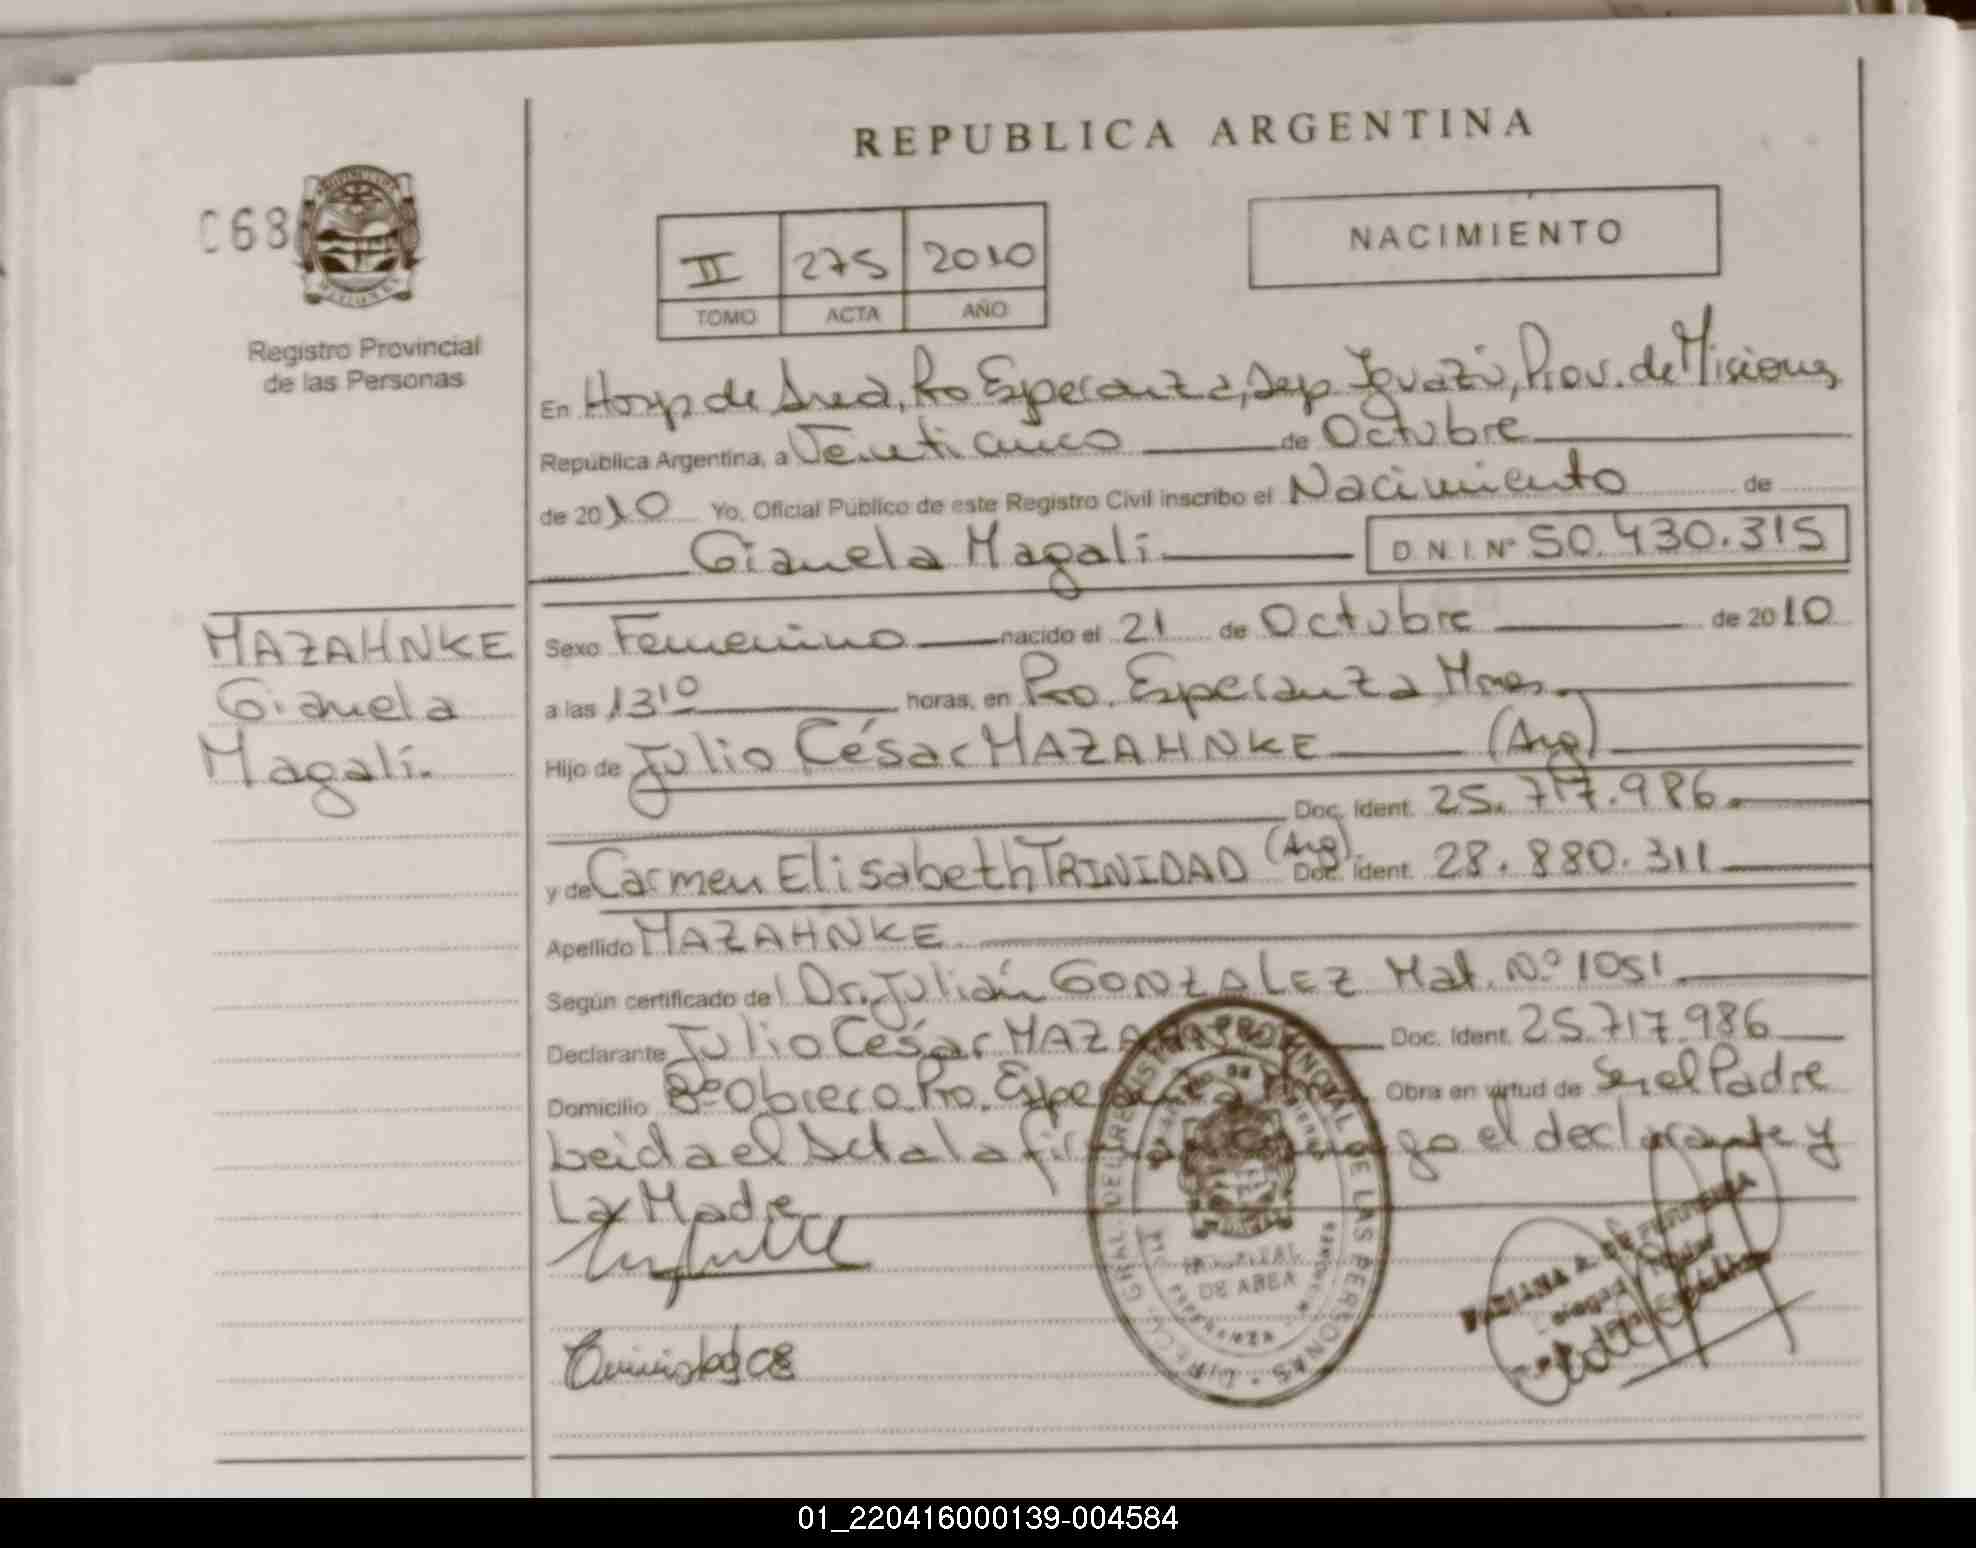 REPUBLICA ARGENTINA
C68
Registro Provincial
de las Personas
NACIMIENTO
II 275 2010
TOMO ACTA AÑO
En Hosp de Area, Pto Esperanza, Dep. Iguazú, Prov. de Misiones
República Argentina, a Veinticinco de Octubre
de 2010 Yo, Oficial Público de este Registro Civil inscribo el Nacimiento de
Gianela Magalí D.N.I. Nº 50.430.315
MAZAHNKE
Gianela
Magalí.
Sexo Femenino nacido el 21 de Octubre de 2010
a las 13 10 horas, en Pto. Esperanza Mnes.
Hijo de Julio César MAZAHNKE (Arg)
Doc. Ident. 25.717.986.
y de Carmen Elisabeth TRINIDAD (Arg). Doc. Ident. 28.880.311
Apellido MAZAHNKE
Según certificado del Dr. Julián GONZALEZ Mat. Nº 1051.
Declarante Julio César Doc. Ident. 25.717.986
Domicilio Bº Obrero Pto. Esperanza Obra en virtud de Ser el Padre
Leida el Acta la el declarante y
La Madre
HOSPITAL
DE AREA
01_220416000139-004584